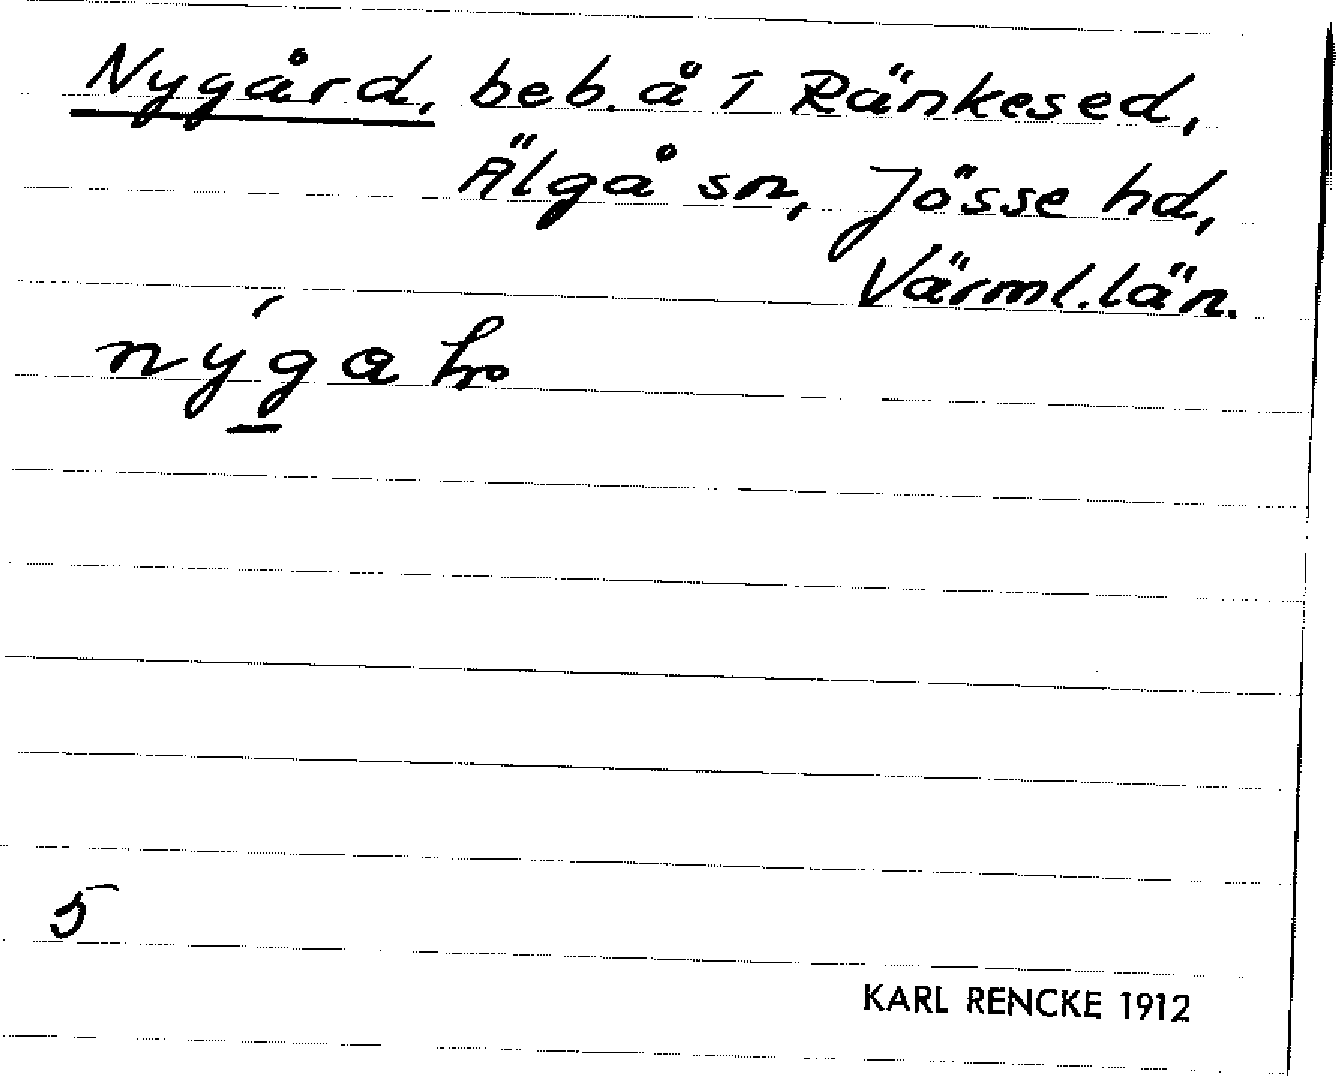 Nygård, beb. å 1 Ränkesed,
Älgå sn, Jösse hd,
Värml. län.
5
KARL RENCKE 1912